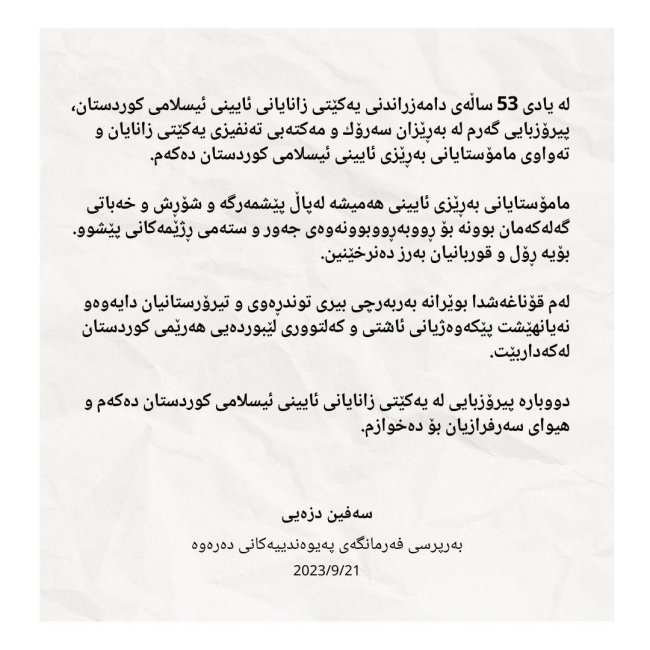 لە یادی 53 ساڵەی دامەزراندنی یەکێتی زانایانی ئایینی ئیسلامی کوردستان،
پیرۆزبایی گەرم لە بەڕێزان سەرۆك و مەکتەبی تەنفیزی یەکێتی زانایان و
تەواوی مامۆستایانی بەڕێزی ئایینی ئیسلامی کوردستان دەکەم.
مامۆستایانی بەڕێزی ئایینی هەمیشە لەپاڵ پێشمەرگە و شۆڕش و خەباتی
گەلەکەمان بوونە بۆ ڕووبەڕووبوونەوەی جەور و ستەمی ڕژێمەکانی پێشوو.
بۆیە ڕۆڵ و قوربانیان بەرز دەنرخێنین.
لەم قۆناغەشدا بوێرانە بەربەرچی بیری توندڕەوی و تیرۆرستانیان دایەوەو
نەیانهێشت پێکەوەژیانی ئاشتی و کەلتووری لێبوردەیی هەرێمی کوردستان
لەکەداربێت.
دووبارە پیرۆزبایی لە یەکێتی زانایانی ئایینی ئیسلامی کوردستان دەکەم و
هیوای سەرفرازیان بۆ دەخوازم.
سەفین دزەیی
بەرپرسی فەرمانگەی پەیوەندییەکانی دەرەوە
2023/9/21